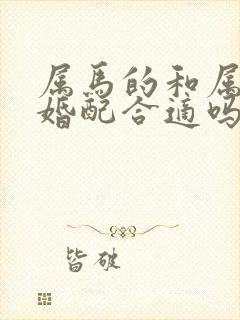 属马的和属
婚配合适吗
皆破